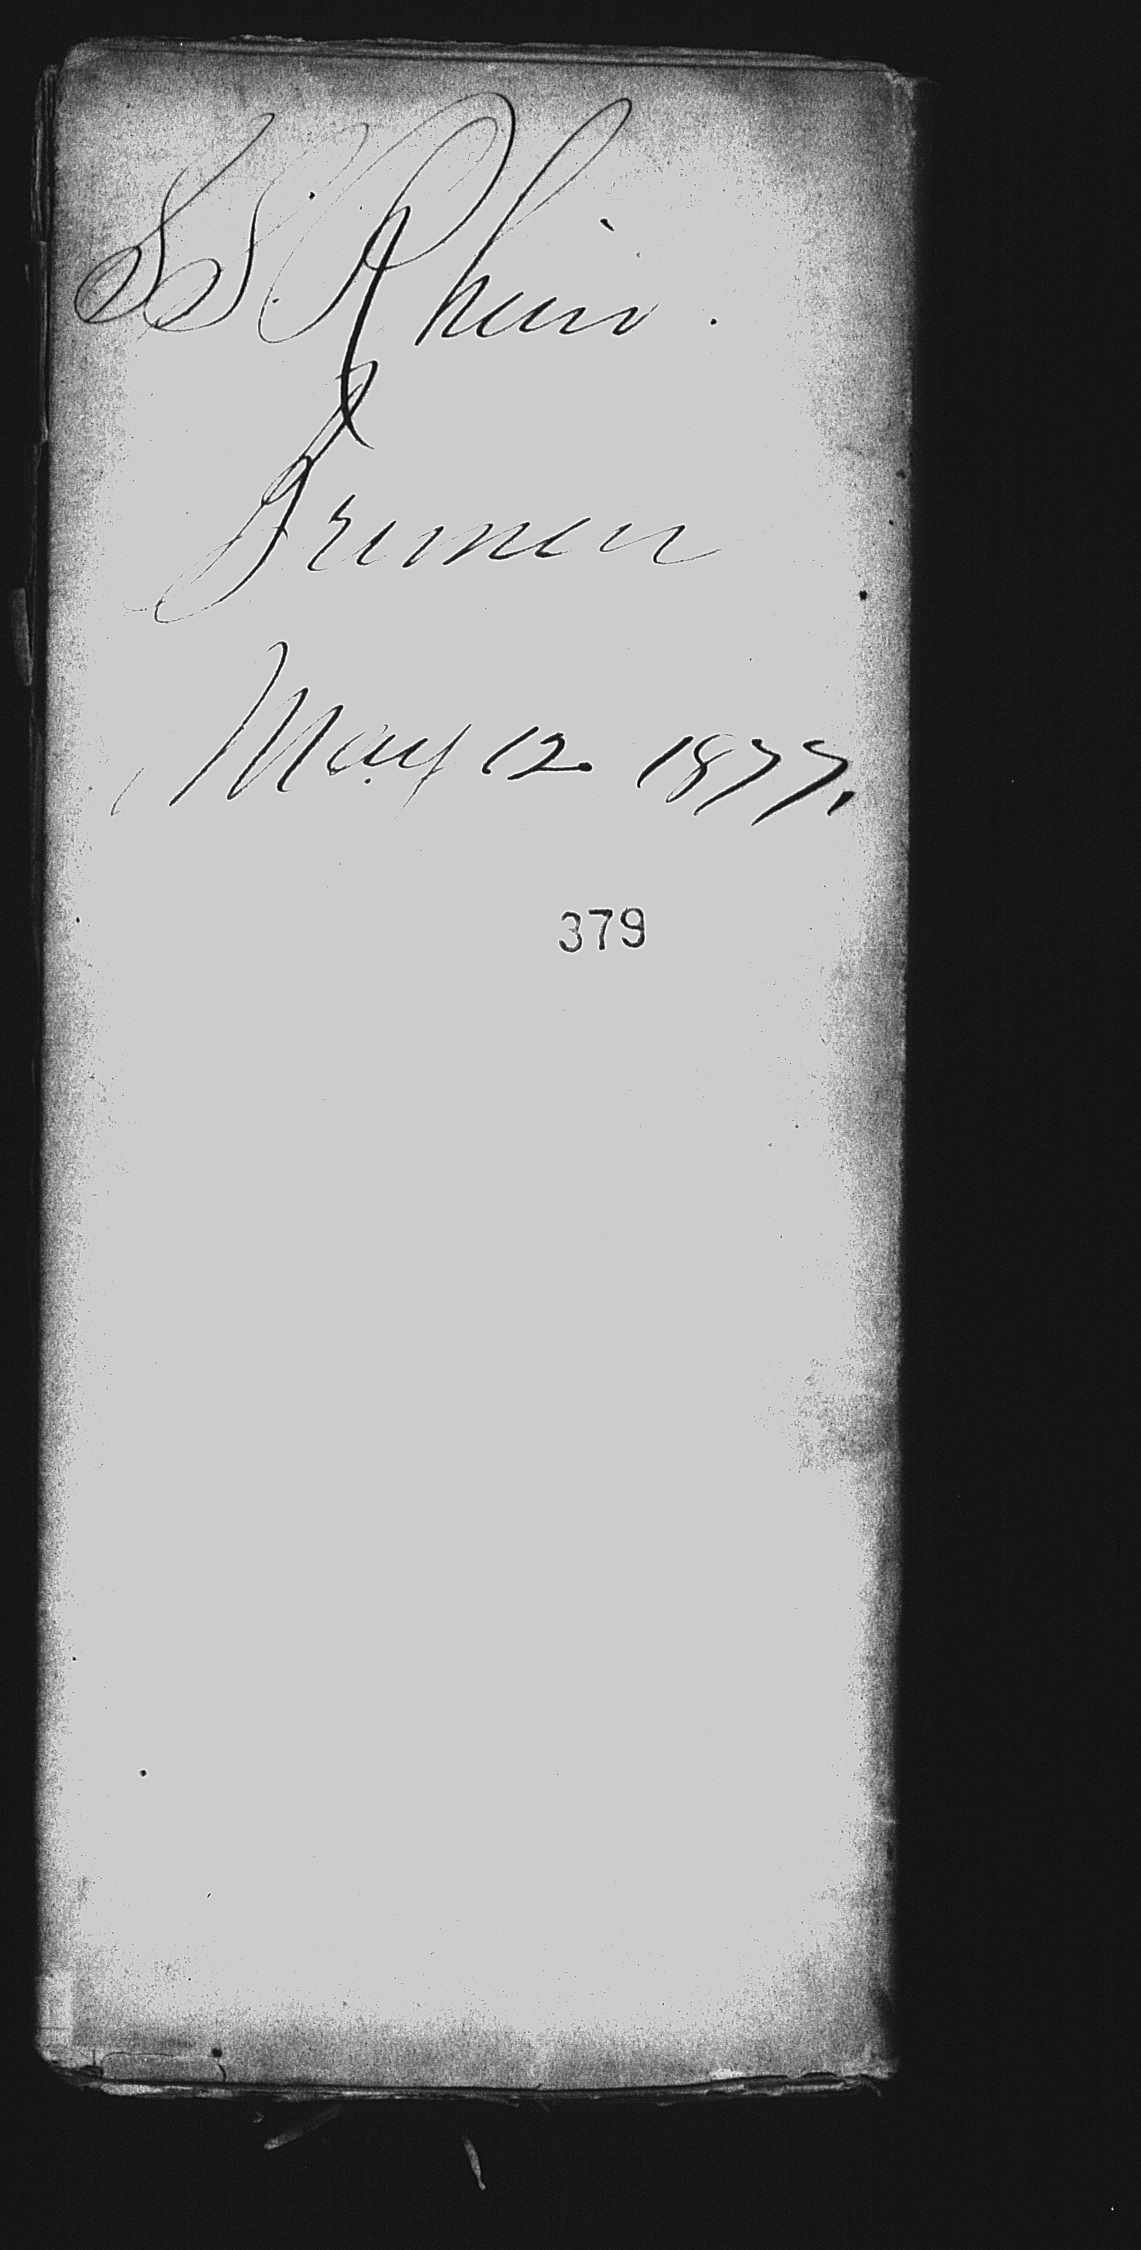 SS. Rhein.
Bremen
May 12 1877.
379